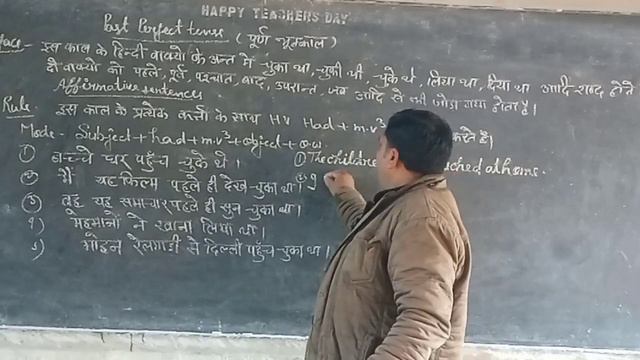 HAPPY TEACHERS DAY
Past Perfect tense (पूर्ण भूतकाल)
इस काल के हिन्दी वाक्यों के अन्त में चुका था, चुकी थी, चुके थे, लिया था, दिया था आदि शब्द होते
दो वाक्यों को पहले, पूर्व, पश्चात, बाद, उपरान्त, जब आदि से भी जोड़ा गया होता है।
Affirmative sentences
Rule- इस काल के प्रत्येक कर्त्ता के साथ HV Had + m.v³ करते है।
Mode- Subject + had + m.v³ + object + o.w.
① बच्चे घर पहुँच चुके थे। ① The ched at home.
② मैं यह फिल्म पहले ही देख चुका था। ② I
③ वह यह समाचार पहले ही सुन चुका था।
4) मेहमानों ने खाना लिया था।
5) मोहन रेलगाड़ी से दिल्ली पहुँच चुका था।